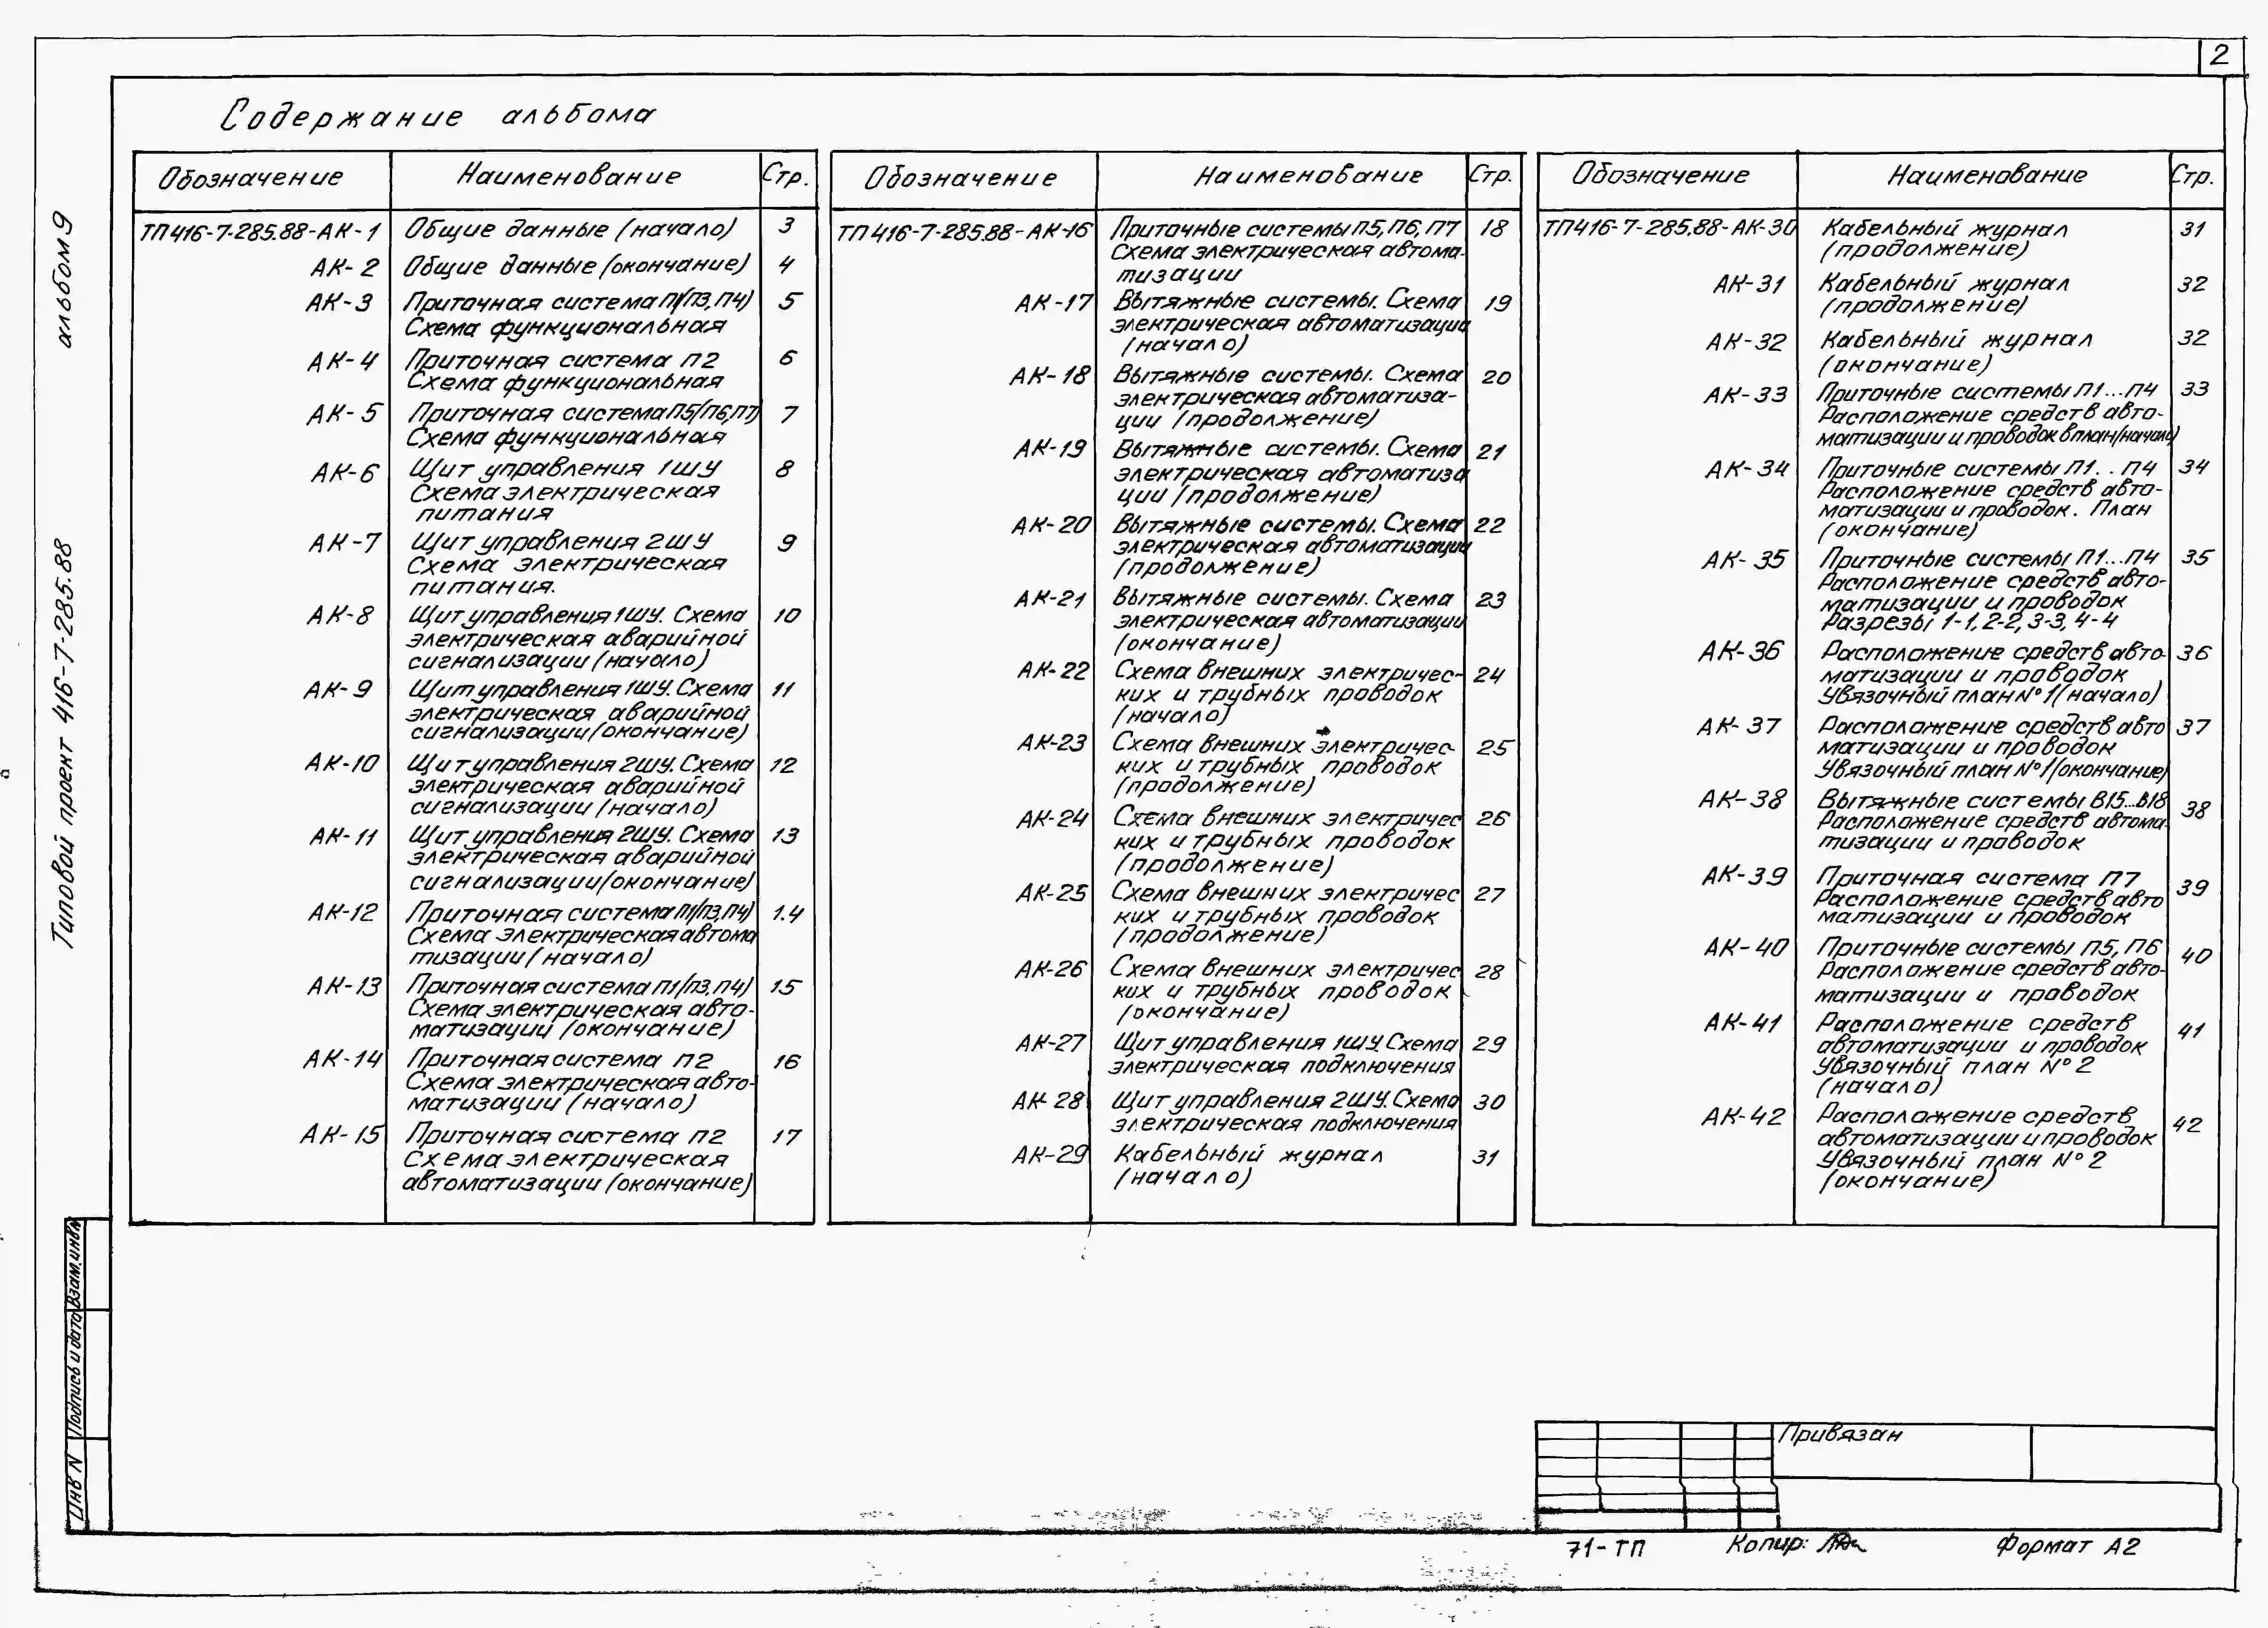 2
Содержание альбома
Обозначение Наименование Стр.
ТП 416-7-285.88-АК-1 Общие данные (начало) 3
АК-2 Общие данные (окончание) 4
АК-3 Приточная система П1(П3,П4) 5
Схема функциональная
АК-4 Приточная система П2 6
Схема функциональная
АК-5 Приточная система П5(П6,П7) 7
Схема функциональная
АК-6 Щит управления 1ШУ 8
Схема электрическая
питания
АК-7 Щит управления 2ШУ 9
Схема электрическая
питания.
АК-8 Щит управления 1ШУ. Схема 10
электрическая аварийной
сигнализации (начало)
АК-9 Щит управления 1ШУ. Схема 11
электрическая аварийной
сигнализации (окончание)
АК-10 Щит управления 2ШУ. Схема 12
электрическая аварийной
сигнализации (начало)
АК-11 Щит управления 2ШУ. Схема 13
электрическая аварийной
сигнализации (окончание)
АК-12 Приточная система П1(П3,П4) 1.4
Схема электрическая автома
тизации (начало)
АК-13 Приточная система П1(П3,П4) 15
Схема электрическая авто-
матизации (окончание)
АК-14 Приточная система П2 16
Схема электрическая авто-
матизации (начало)
АК-15 Приточная система П2 17
Схема электрическая
автоматизации (окончание)
Обозначение Наименование Стр.
ТП 416-7-285.88-АК-16 Приточные системы П5, П6, П7 18
Схема электрическая автома-
тизации
АК-17 Вытяжные системы. Схема 19
электрическая автоматизации
(начало)
АК-18 Вытяжные системы. Схема 20
электрическая автоматиза-
ции (продолжение)
АК-19 Вытяжные системы. Схема 21
электрическая автоматиза
ции (продолжение)
АК-20 Вытяжные системы. Схема 22
электрическая автоматизации
(продолжение)
АК-21 Вытяжные системы. Схема 23
электрическая автоматизации
(окончание)
АК-22 Схема внешних электричес- 24
ких и трубных проводок
(начало)
АК-23 Схема внешних электричес- 25
ких и трубных проводок
(продолжение)
АК-24 Схема внешних электричес 26
ких и трубных проводок
(продолжение)
АК-25 Схема внешних электричес 27
ких и трубных проводок
(продолжение)
АК-26 Схема внешних электричес 28
ких и трубных проводок
(окончание)
АК-27 Щит управления 1ШУ. Схема 29
электрическая подключения
АК-28 Щит управления 2ШУ. Схема 30
электрическая подключения
АК-29 Кабельный журнал 31
(начало)
Обозначение Наименование Стр.
ТП416-7-285.88-АК-30 Кабельный журнал 31
(продолжение)
АК-31 Кабельный журнал 32
(продолжение)
АК-32 Кабельный журнал 32
(окончание)
АК-33 Приточные системы П1...П4 33
Расположение средств авто-
матизации и проводок в план (начало)
АК-34 Приточные системы П1. . П4 34
Расположение средств авто-
матизации и проводок. План
(окончание)
АК-35 Приточные системы П1...П4 35
Расположение средств авто-
матизации и проводок
Разрезы 1-1, 2-2, 3-3, 4-4
АК-36 Расположение средств авто- 36
матизации и проводок
Увязочный план №1 (начало)
АК-37 Расположение средств авто 37
матизации и проводок
Увязочный план №1 (окончание)
АК-38 Вытяжные системы В15...В18 38
Расположение средств автома-
тизации и проводок
АК-39 Приточная система П7 39
Расположение средств авто
матизации и проводок
АК-40 Приточные системы П5, П6 40
Расположение средств авто-
матизации и проводок
АК-41 Расположение средств 41
автоматизации и проводок
Увязочный план №2
(начало)
АК-42 Расположение средств 42
автоматизации и проводок
Увязочный план №2
(окончание)
Типовой проект 416-7-285.88 альбом 9
Инв N Подпись и дата Взам.инв.№
Привязан
71-ТП Копир: Формат А2